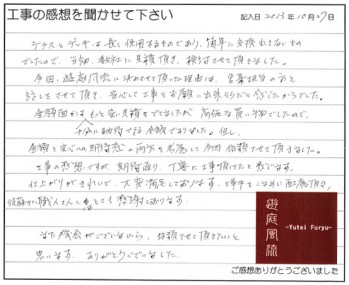 工事の感想を聞かせて下さい
記入日 2013年10月27日
テラスとデッキは長く使用するものであり、簡単に交換できないもの
でしたので、当初、数社に見積頂き、検討させて頂きました。
今回、遊庭風流に決めさせて頂いた理由は、営業担当の方と
話しをさせて頂き、安心して工事をお願い出来そうだと感じたからでした。
金額面では もっと安い見積もでましたが 高価な買い物でしたので、
十分に納得できる金額でありました。但し、
金額と安心への期待感の両方を考慮して今回依頼させて頂きました。
工事の感想ですが、期待通り、丁寧に工事頂けたと感じます。
仕上がりがきれいで、大変満足しております。工事中もこまめに配慮頂き、
職人さんにもとても感謝しております。
また機会がございましたら、依頼させて頂きたいと
思います。ありがとうございました。
遊庭風流
-Yutei Furyu-
ご感想ありがとうございました